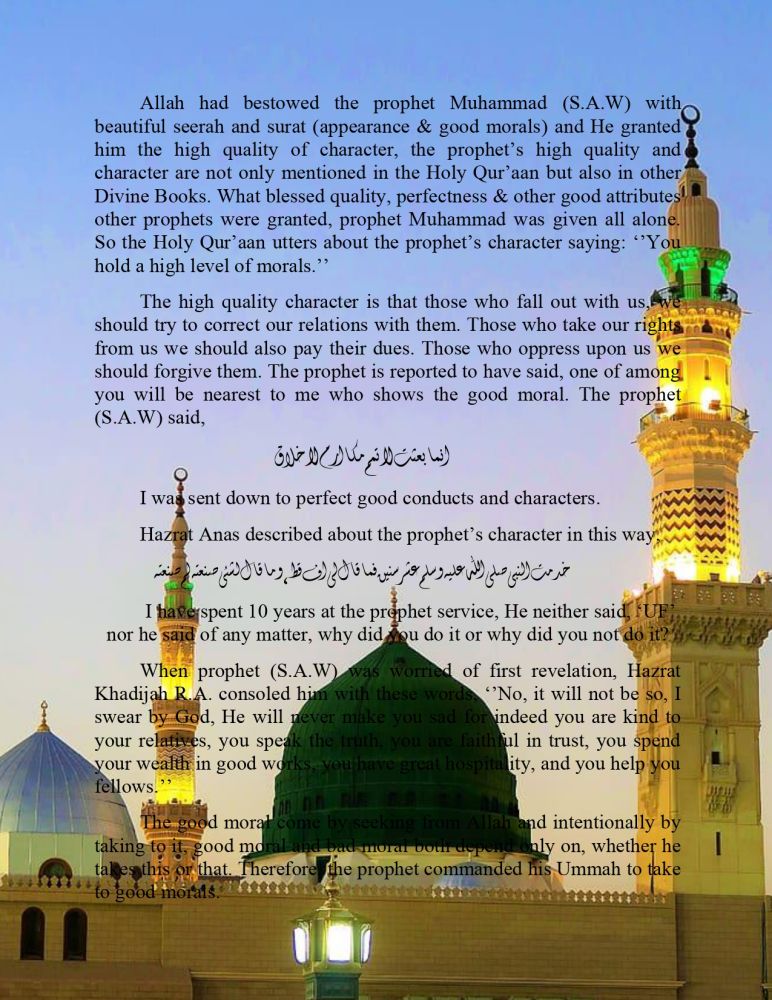 Allah had bestowed the prophet Muhammad (S.A.W) with
beautiful seerah and surat (appearance & good morals) and He granted
him the high quality of character, the prophet’s high quality and
character are not only mentioned in the Holy Qur’aan but also in other
Divine Books. What blessed quality, perfectness & other good attributes
other prophets were granted, prophet Muhammad was given all alone.
So the Holy Qur’aan utters about the prophet’s character saying: ‘’You
hold a high level of morals.’’
The high quality character is that those who fall out with us, we
should try to correct our relations with them. Those who take our rights
from us we should also pay their dues. Those who oppress upon us we
should forgive them. The prophet is reported to have said, one of among
you will be nearest to me who shows the good moral. The prophet
(S.A.W) said,
انما بعثت لاتمم مكارم الاخلاق
I was sent down to perfect good conducts and characters.
Hazrat Anas described about the prophet’s character in this way,
خدمت النبی صلی اللہ علیہ وسلم عشر سنین فما قال لی اف قط، وما قال لشئی صنعتہ لم صنعتہ
I have spent 10 years at the prophet service, He neither said, ‘UF’
nor he said of any matter, why did you do it or why did you not do it?
When prophet (S.A.W) was worried of first revelation, Hazrat
Khadijah R.A. consoled him with these words, ‘’No, it will not be so, I
swear by God, He will never make you sad for indeed you are kind to
your relatives, you speak the truth, you are faithful in trust, you spend
your wealth in good works, you have great hospitality, and you help you
fellows.’’
The good moral come by seeking from Allah and intentionally by
taking to it, good moral and bad moral both depend only on, whether he
takes this or that. Therefore, the prophet commanded his Ummah to take
to good morals.